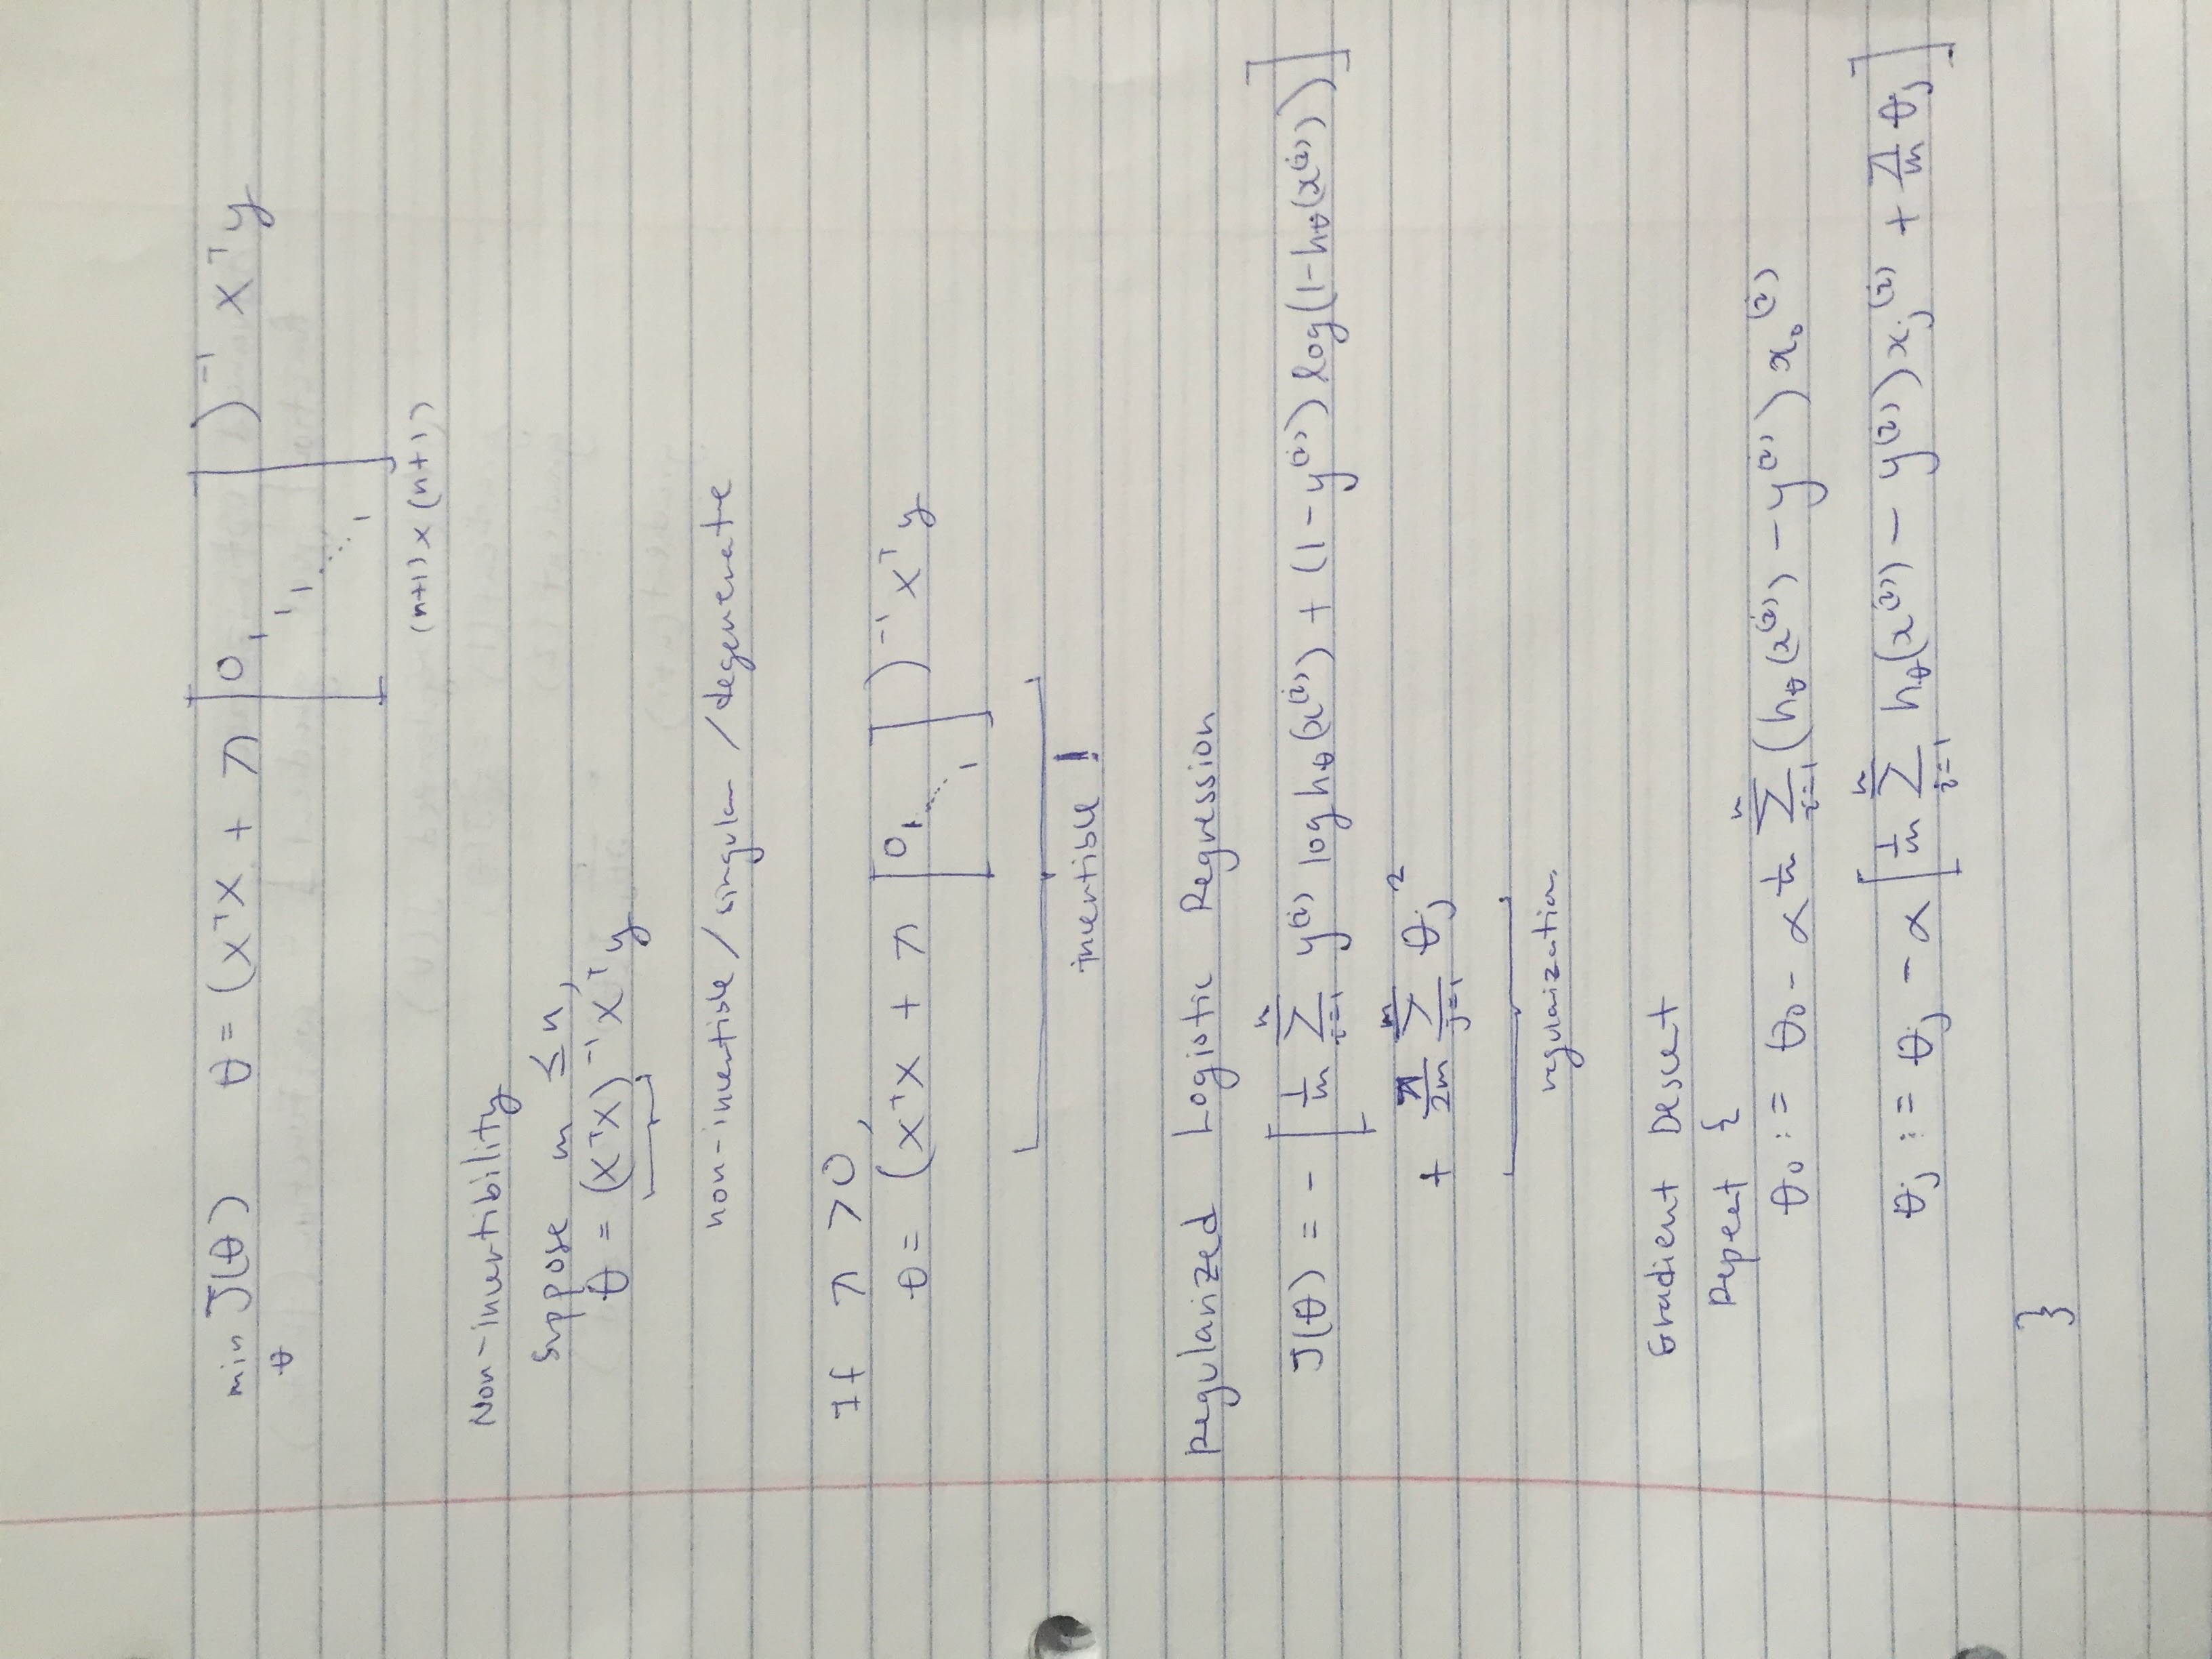 min J(θ) θ = (XᵀX + λ [0, 1 1 1 ⋱ 1])⁻¹ Xᵀy
θ
(n+1) × (n+1)
Non-invertibility
Suppose m ≤ n,
θ = (XᵀX)⁻¹Xᵀy
non-invertible / singular / degenerate
If λ > 0,
θ = (XᵀX + λ [0, 1 ⋱ 1])⁻¹ Xᵀy
invertible!
Regularized Logistic Regression
J(θ) = - [1/m Σᵢ₌₁ⁿ y⁽ⁱ⁾ log hθ(x⁽ⁱ⁾) + (1-y⁽ⁱ⁾) log(1-hθ(x⁽ⁱ⁾))]
+ λ/2m Σⱼ₌₁ᵐ θⱼ²
regularization
Gradient Descent
Repeat {
θ₀ := θ₀ - α 1/m Σᵢ₌₁ⁿ (hθ(x⁽ⁱ⁾) - y⁽ⁱ⁾) x₀⁽ⁱ⁾
θⱼ := θⱼ - α [1/m Σᵢ₌₁ⁿ hθ(x⁽ⁱ⁾) - y⁽ⁱ⁾) xⱼ⁽ⁱ⁾ + λ/m θⱼ]
}